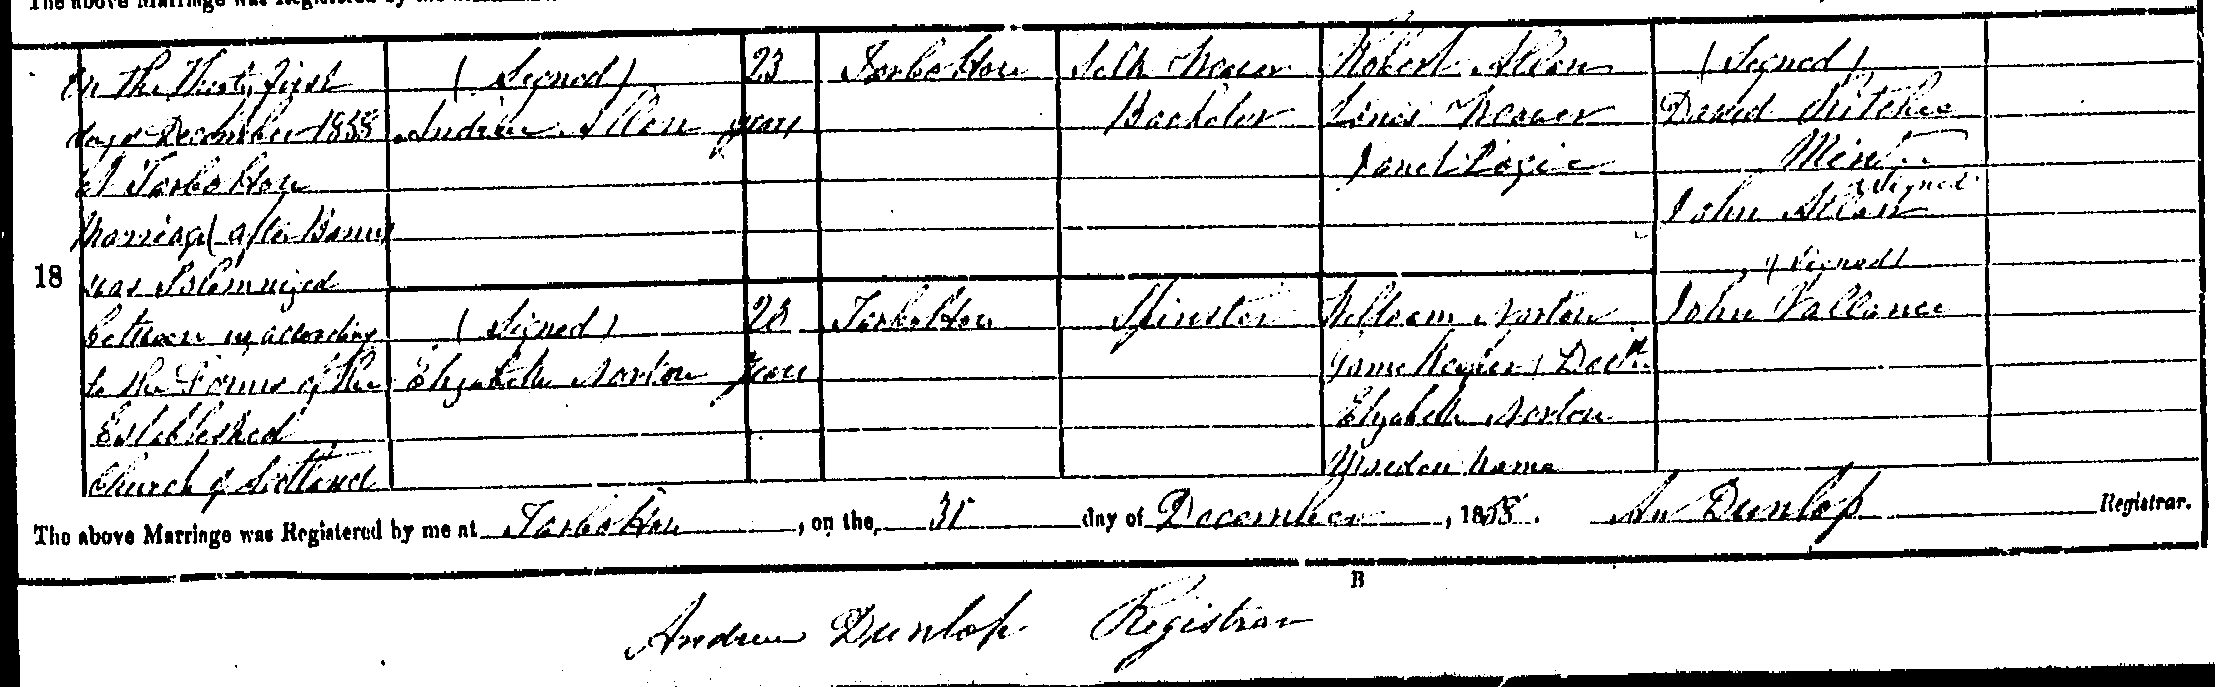 The above Marriage was Registered by me
On the Thirty first
day of December 1858
At Tarbolton
Marriage (after Banns)
was Solemnized
between us according
to the Forms of the
Established
Church of Scotland
18
(Signed)
Andrew Allan
(Signed)
Elizabeth Norton
23
years
23
years
Tarbolton
Tarbolton
Silk Weaver
Bachelor
Spinster
Robert Allan
Weaver
Janet Logie
William Norton
Game Keeper (Decd.
Elizabeth Norton
Maiden name
(Signed)
David Ritchie
Minr.
Signed
John Allan
(Signed)
John Vallance
The above Marriage was Registered by me at Tarbolton, on the, 31 day of December, 1858. An Dunlop Registrar.
B
Andrew Dunlop Registrar